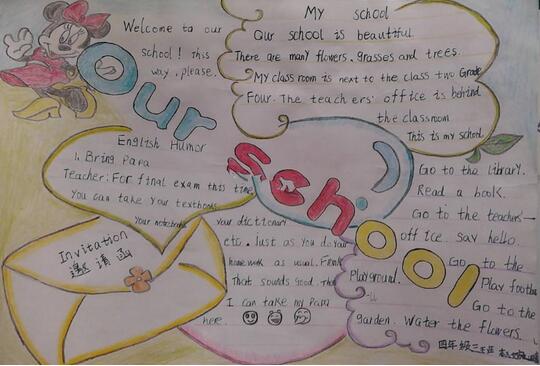 Welcome to our
school! This
way, please.
My school
Our school is beautiful.
There are many flowers, grasses and trees.
My class room is next to the class two Grade
Four. The teachers' office is behind
the classroom
This is my school
Our
school
English Humor
1. Bring Papa
Teacher: For final exam this time
You can take your textbook
your notebook
your dictionary
etc. Just as you do your
homework as usual.
That sounds good.
I can take my Papa
here.
Invitation
邀请函
Go to the library.
Read a book.
Go to the teachers'
office. say hello.
Go to the
Playground. Play footba
Go to the
garden. Water the flowers.
四年级三班